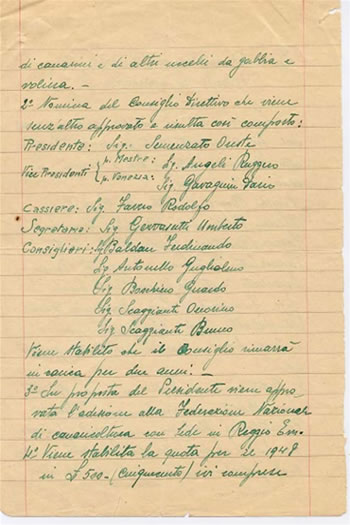 di canarini e di altri uccelli da gabbia e
voliera. —
2° Nomina del Consiglio Direttivo che viene
senz'altro approvato e risulta così composto:
Presidente: Sig. Semenzato Oreste
Vice Presidenti { p. Mestre: Sig. Angeli Ruggero
p. Venezia: Sig. Gavagnin Dario
Cassiere: Sig. Favro Rodolfo
Segretario: Sig. Gervasutti Umberto
Consiglieri: Sig. Baldan Ferdinando
Sig. Antonello Guglielmo
Sig. Boschino
Sig. Scaggiante Onorino
Sig. Scaggiante Bruno
Viene stabilito che il Consiglio rimarrà
in carica per due anni: —
3° Su proposta del Presidente viene appro-
vata l'adesione alla Federazione Nazionale
di canaricoltura con sede in Reggio Em.
4° Viene stabilita la quota per il 1948
in £ 500.- (Cinquecento) ivi comprese